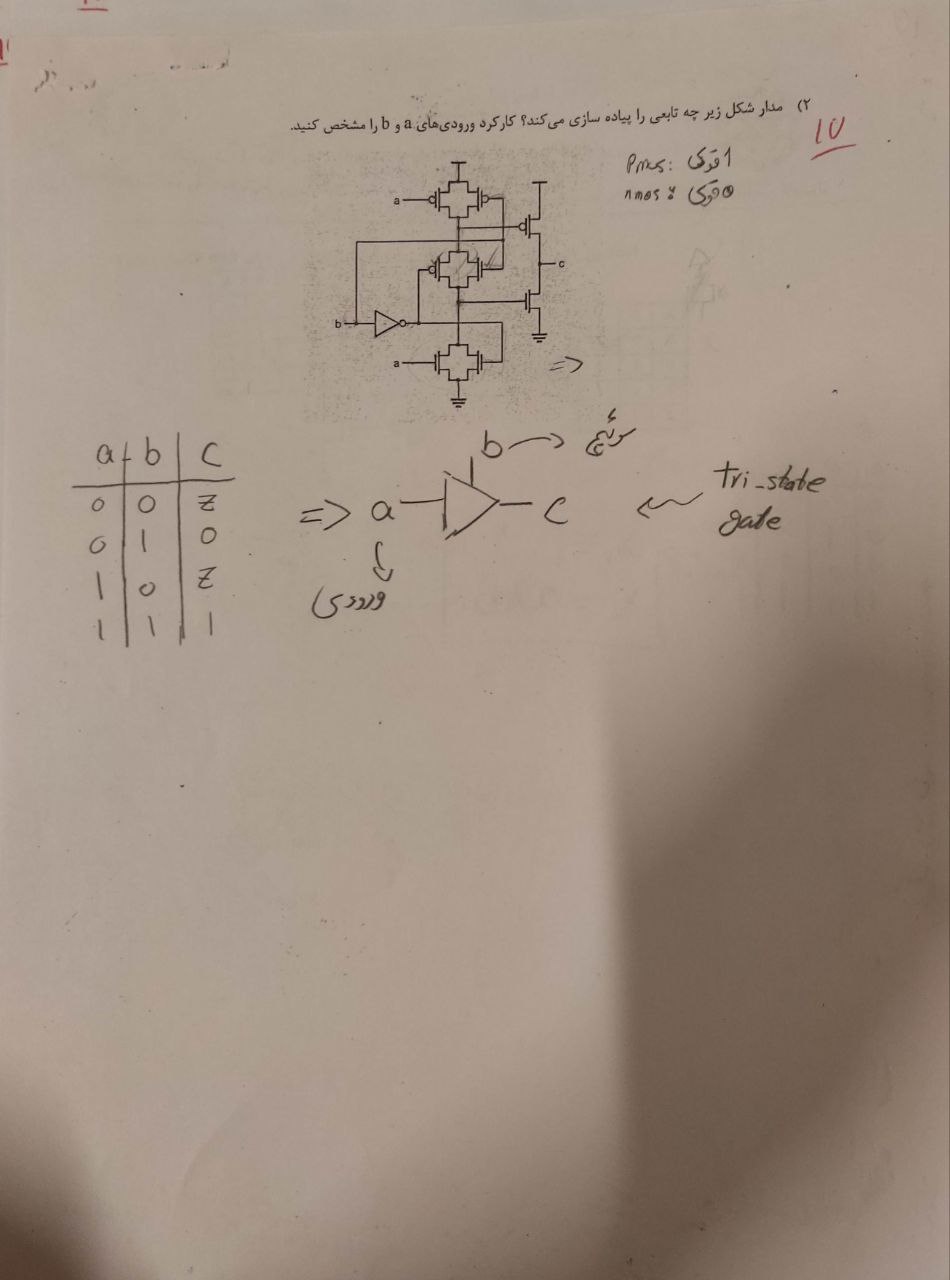 ۲) مدار شکل زیر چه تابعی را پیاده سازی می‌کند؟ کارکرد ورودی‌های a و b را مشخص کنید.
10
Pmos: 1 قوی
nmos: 0 قوی
a
c
b
a
=>
a b c
0 0 Z
0 1 0
1 0 Z
1 1 1
=> a
b → سوئیچ
c
ورودی
tri-state
gate